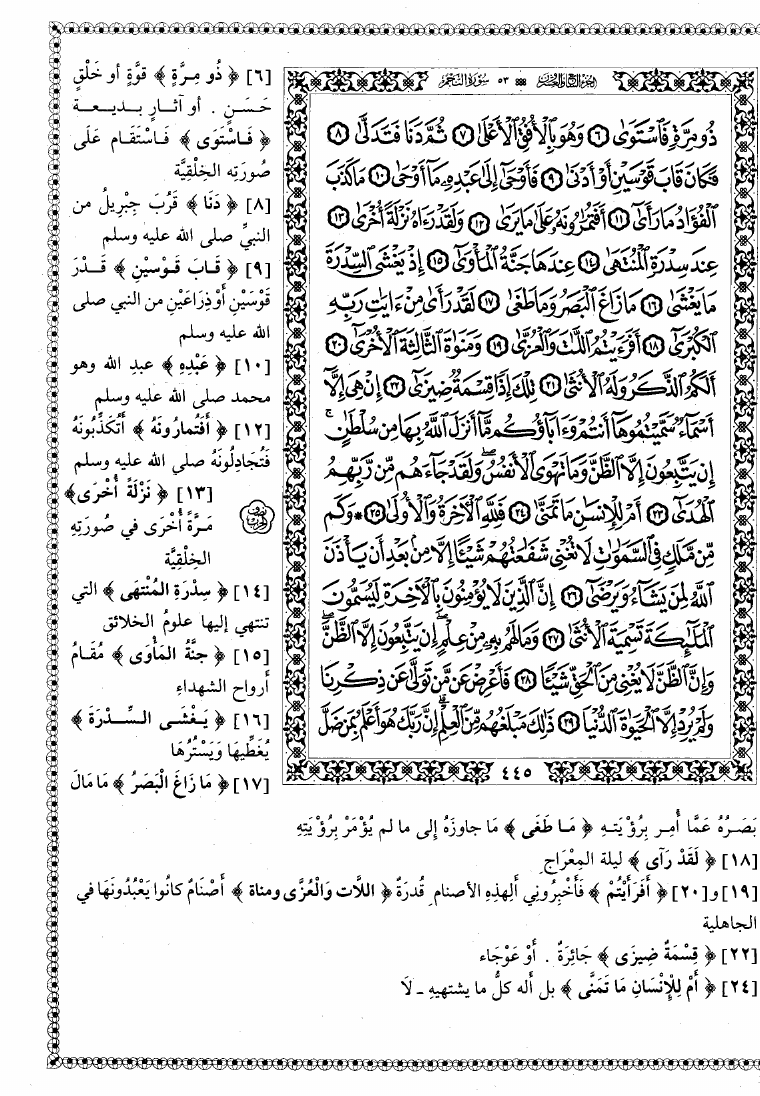 الجزء السابع والعشرون ٥٣ سورة النجم
ذُو مِرَّةٍ فَٱسْتَوَىٰ ٦ وَهُوَ بِٱلْأُفُقِ ٱلْأَعْلَىٰ ٧ ثُمَّ دَنَا فَتَدَلَّىٰ ٨
فَكَانَ قَابَ قَوْسَيْنِ أَوْ أَدْنَىٰ ٩ فَأَوْحَىٰٓ إِلَىٰ عَبْدِهِۦ مَآ أَوْحَىٰ ١٠ مَا كَذَبَ
ٱلْفُؤَادُ مَا رَأَىٰٓ ١١ أَفَتُمَٰرُونَهُۥ عَلَىٰ مَا يَرَىٰ ١٢ وَلَقَدْ رَءَاهُ نَزْلَةً أُخْرَىٰ ١٣
عِندَ سِدْرَةِ ٱلْمُنتَهَىٰ ١٤ عِندَهَا جَنَّةُ ٱلْمَأْوَىٰٓ ١٥ إِذْ يَغْشَى ٱلسِّدْرَةَ
مَا يَغْشَىٰ ١٦ مَا زَاغَ ٱلْبَصَرُ وَمَا طَغَىٰ ١٧ لَقَدْ رَأَىٰ مِنْ ءَايَٰتِ رَبِّهِ
ٱلْكُبْرَىٰٓ ١٨ أَفَرَءَيْتُمُ ٱللَّٰتَ وَٱلْعُزَّىٰ ١٩ وَمَنَوٰةَ ٱلثَّالِثَةَ ٱلْأُخْرَىٰٓ ٢٠
أَلَكُمُ ٱلذَّكَرُ وَلَهُ ٱلْأُنثَىٰ ٢١ تِلْكَ إِذًا قِسْمَةٌ ضِيزَىٰٓ ٢٢ إِنْ هِىَ إِلَّآ
أَسْمَآءٌ سَمَّيْتُمُوهَآ أَنتُمْ وَءَابَآؤُكُم مَّآ أَنزَلَ ٱللَّهُ بِهَا مِن سُلْطَٰنٍ ۚ
إِن يَتَّبِعُونَ إِلَّا ٱلظَّنَّ وَمَا تَهْوَى ٱلْأَنفُسُ ۖ وَلَقَدْ جَآءَهُم مِّن رَّبِّهِمُ
ٱلْهُدَىٰٓ ٢٣ أَمْ لِلْإِنسَٰنِ مَا تَمَنَّىٰ ٢٤ فَلِلَّهِ ٱلْءَاخِرَةُ وَٱلْأُولَىٰ ٢٥ ۞ وَكَم
مِّن مَّلَكٍ فِى ٱلسَّمَٰوَٰتِ لَا تُغْنِى شَفَٰعَتُهُمْ شَيْـًٔا إِلَّا مِنۢ بَعْدِ أَن يَأْذَنَ
ٱللَّهُ لِمَن يَشَآءُ وَيَرْضَىٰٓ ٢٦ إِنَّ ٱلَّذِينَ لَا يُؤْمِنُونَ بِٱلْءَاخِرَةِ لَيُسَمُّونَ
ٱلْمَلَٰٓئِكَةَ تَسْمِيَةَ ٱلْأُنثَىٰ ٢٧ وَمَا لَهُم بِهِۦ مِنْ عِلْمٍ ۖ إِن يَتَّبِعُونَ إِلَّا ٱلظَّنَّ ۖ
وَإِنَّ ٱلظَّنَّ لَا يُغْنِى مِنَ ٱلْحَقِّ شَيْـًٔا ٢٨ فَأَعْرِضْ عَن مَّن تَوَلَّىٰ عَن ذِكْرِنَا
وَلَمْ يُرِدْ إِلَّا ٱلْحَيَوٰةَ ٱلدُّنْيَا ٢٩ ذَٰلِكَ مَبْلَغُهُم مِّنَ ٱلْعِلْمِ ۚ إِنَّ رَبَّكَ هُوَ أَعْلَمُ بِمَن ضَلَّ
٤٤٥
[٦] ﴿ ذُو مِرَّةٍ ﴾ قوَّةٍ أو خَلْقٍ
حَسَنٍ . أو آثارٍ بديعة
﴿ فَاسْتَوَى ﴾ فَاسْتَقَام عَلَى
صُورَتِه الخِلْقِيَّة
[٨] ﴿ دَنَا ﴾ قَرُبَ جِبْرِيلُ من
النبيِّ صلى الله عليه وسلم
[٩] ﴿ قَابَ قَوْسَيْنِ ﴾ قَدْرَ
قَوْسَيْنِ أَوْ ذِرَاعَيْنِ من النبي صلى
الله عليه وسلم
[١٠] ﴿ عَبْدِهِ ﴾ عبدِ الله وهو
محمد صلى الله عليه وسلم
[١٢] ﴿ أَفَتُمارُونَهُ ﴾ أَتُكَذِّبُونَهُ
فَتُجادِلُونَهُ صلى الله عليه وسلم
[١٣] ﴿ نَزْلَةً أُخْرَى ﴾
مَرَّةً أُخْرَى في صُورَتِهِ
الخلْقِيَّة
[١٤] ﴿ سِدْرَةِ المُنْتَهَى ﴾ التي
تنتهي إليها علومُ الخلائق
[١٥] ﴿ جنَّةُ المَأْوَى ﴾ مُقَامُ
أرواح الشهداءِ
[١٦] ﴿ يَغْشَى السِّدْرَةَ ﴾
يُغَطِّيهَا وَيَسْتُرُهَا
[١٧] ﴿ مَا زَاغَ الْبَصَرُ ﴾ مَا مَالَ
بَصَرُهُ عَمَّا أُمِر بِرُؤْيَتهِ ﴿ مَا طَغَى ﴾ مَا جاوزَهُ إلى ما لم يُؤْمَرْ بِرُؤْيَتِهِ
[١٨] ﴿ لَقَدْ رَآى ﴾ ليلة المِعْرَاجِ
[١٩] و[٢٠] ﴿ أَفَرَأَيْتُمْ ﴾ فَأَخْبِرُوني أَلِهذِهِ الأصنام قُدرَةٌ ﴿ اللَّاتَ وَالْعُزَّى ومناة ﴾ أَصْنَامٌ كانُوا يَعْبُدُونَهَا في
الجاهلية
[٢٢] ﴿ قِسْمَةٌ ضِيزَى ﴾ جَائِرَةٌ . أَوْ عَوْجَاء
[٢٤] ﴿ أَمْ لِلْإِنْسَانِ مَا تَمَنَّى ﴾ بل أله كلُّ ما يشتهيهِ - لَا